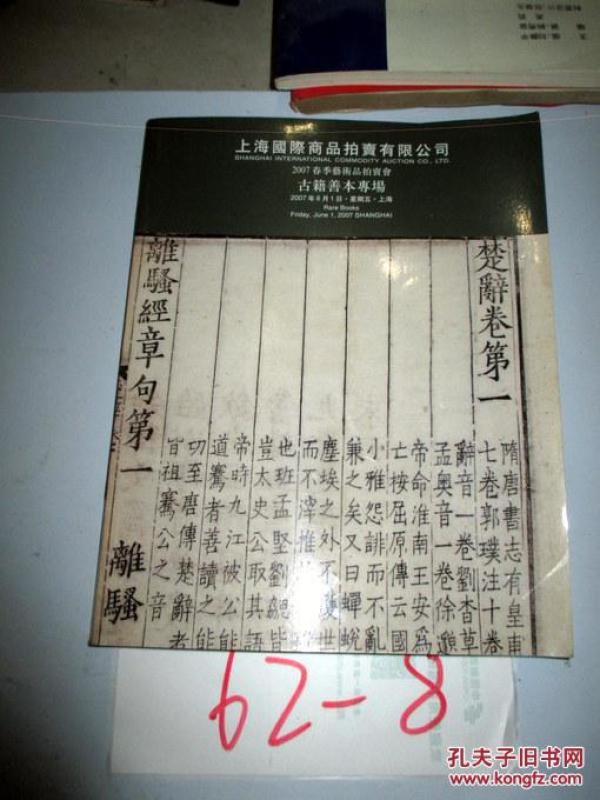 上海國際商品拍賣有限公司
SHANGHAI INTERNATIONAL COMMODITY AUCTION CO., LTD.
2007 春季藝術品拍賣會
古籍善本專場
2007 年 6 月 1 日·星期五·上海
Rare Books
Friday, June 1, 2007 SHANGHAI
楚辭卷第一
隋唐書志有皇甫
七卷郭璞注十卷
辭音一卷劉杳草
孟奧音一卷徐邈
帝命淮南王安為
亡按屈原傳云國
小雅怨誹而不亂
兼之矣又曰蟬蛻
塵埃之外不獲世
而不滓推
也班孟堅劉勰皆
豈太史公取其語
帝時九江被公能
道騫者善讀之能
切至唐傳楚辭者
皆祖騫公之音
離騷經章句第一
離騷
62-8
孔夫子旧书网
www.kongfz.com